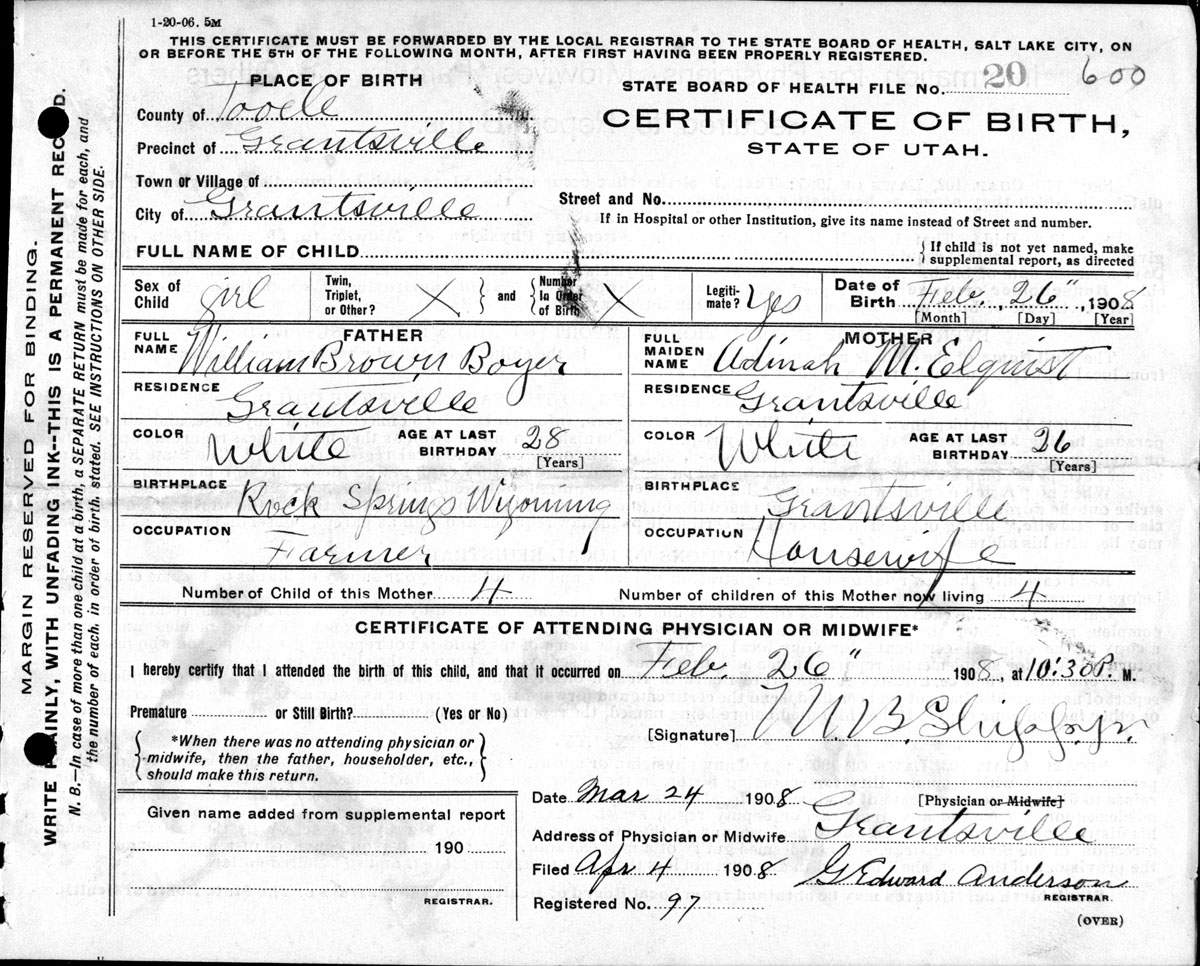 1-20-06. 5M
THIS CERTIFICATE MUST BE FORWARDED BY THE LOCAL REGISTRAR TO THE STATE BOARD OF HEALTH, SALT LAKE CITY, ON
OR BEFORE THE 5TH OF THE FOLLOWING MONTH, AFTER FIRST HAVING BEEN PROPERLY REGISTERED.
PLACE OF BIRTH
County of Tooele
Precinct of Grantsville
Town or Village of
City of Grantsville
STATE BOARD OF HEALTH FILE No. 20 600
CERTIFICATE OF BIRTH,
STATE OF UTAH.
Street and No.
If in Hospital or other Institution, give its name instead of Street and number.
FULL NAME OF CHILD
{ If child is not yet named, make
supplemental report, as directed
Sex of Child girl
Twin, Triplet, or Other? X } and { Number In Order of Birth X
Legiti-mate? Yes
Date of Birth Feb, 26", 1908
[Month] [Day] [Year]
FATHER
FULL NAME William Brown Boyer
RESIDENCE Grantsville
COLOR White AGE AT LAST BIRTHDAY 28
[Years]
BIRTHPLACE Rock Springs Wyoming
OCCUPATION Farmer
MOTHER
FULL MAIDEN NAME Adinah M. Elquist
RESIDENCE Grantsville
COLOR White AGE AT LAST BIRTHDAY 26
[Years]
BIRTHPLACE Grantsville
OCCUPATION Housewife
Number of Child of this Mother 4 Number of children of this Mother now living 4
CERTIFICATE OF ATTENDING PHYSICIAN OR MIDWIFE*
I hereby certify that I attended the birth of this child, and that it occurred on Feb. 26" 1908, at 10:30P. M.
Premature or Still Birth? (Yes or No)
{ *When there was no attending physician or
midwife, then the father, householder, etc.,
should make this return. }
[Signature]
[Physician or Midwife]
Given name added from supplemental report
190
REGISTRAR.
Date Mar 24 1908
Address of Physician or Midwife Grantsville
Filed Apr 4 1908 G Edward Anderson
REGISTRAR.
Registered No. 97
(OVER)
MARGIN RESERVED FOR BINDING.
WRITE PLAINLY, WITH UNFADING INK--THIS IS A PERMANENT RECORD.
N. B.—In case of more than one child at birth, a SEPARATE RETURN must be made for each, and
the number of each, in order of birth, stated. SEE INSTRUCTIONS ON OTHER SIDE.